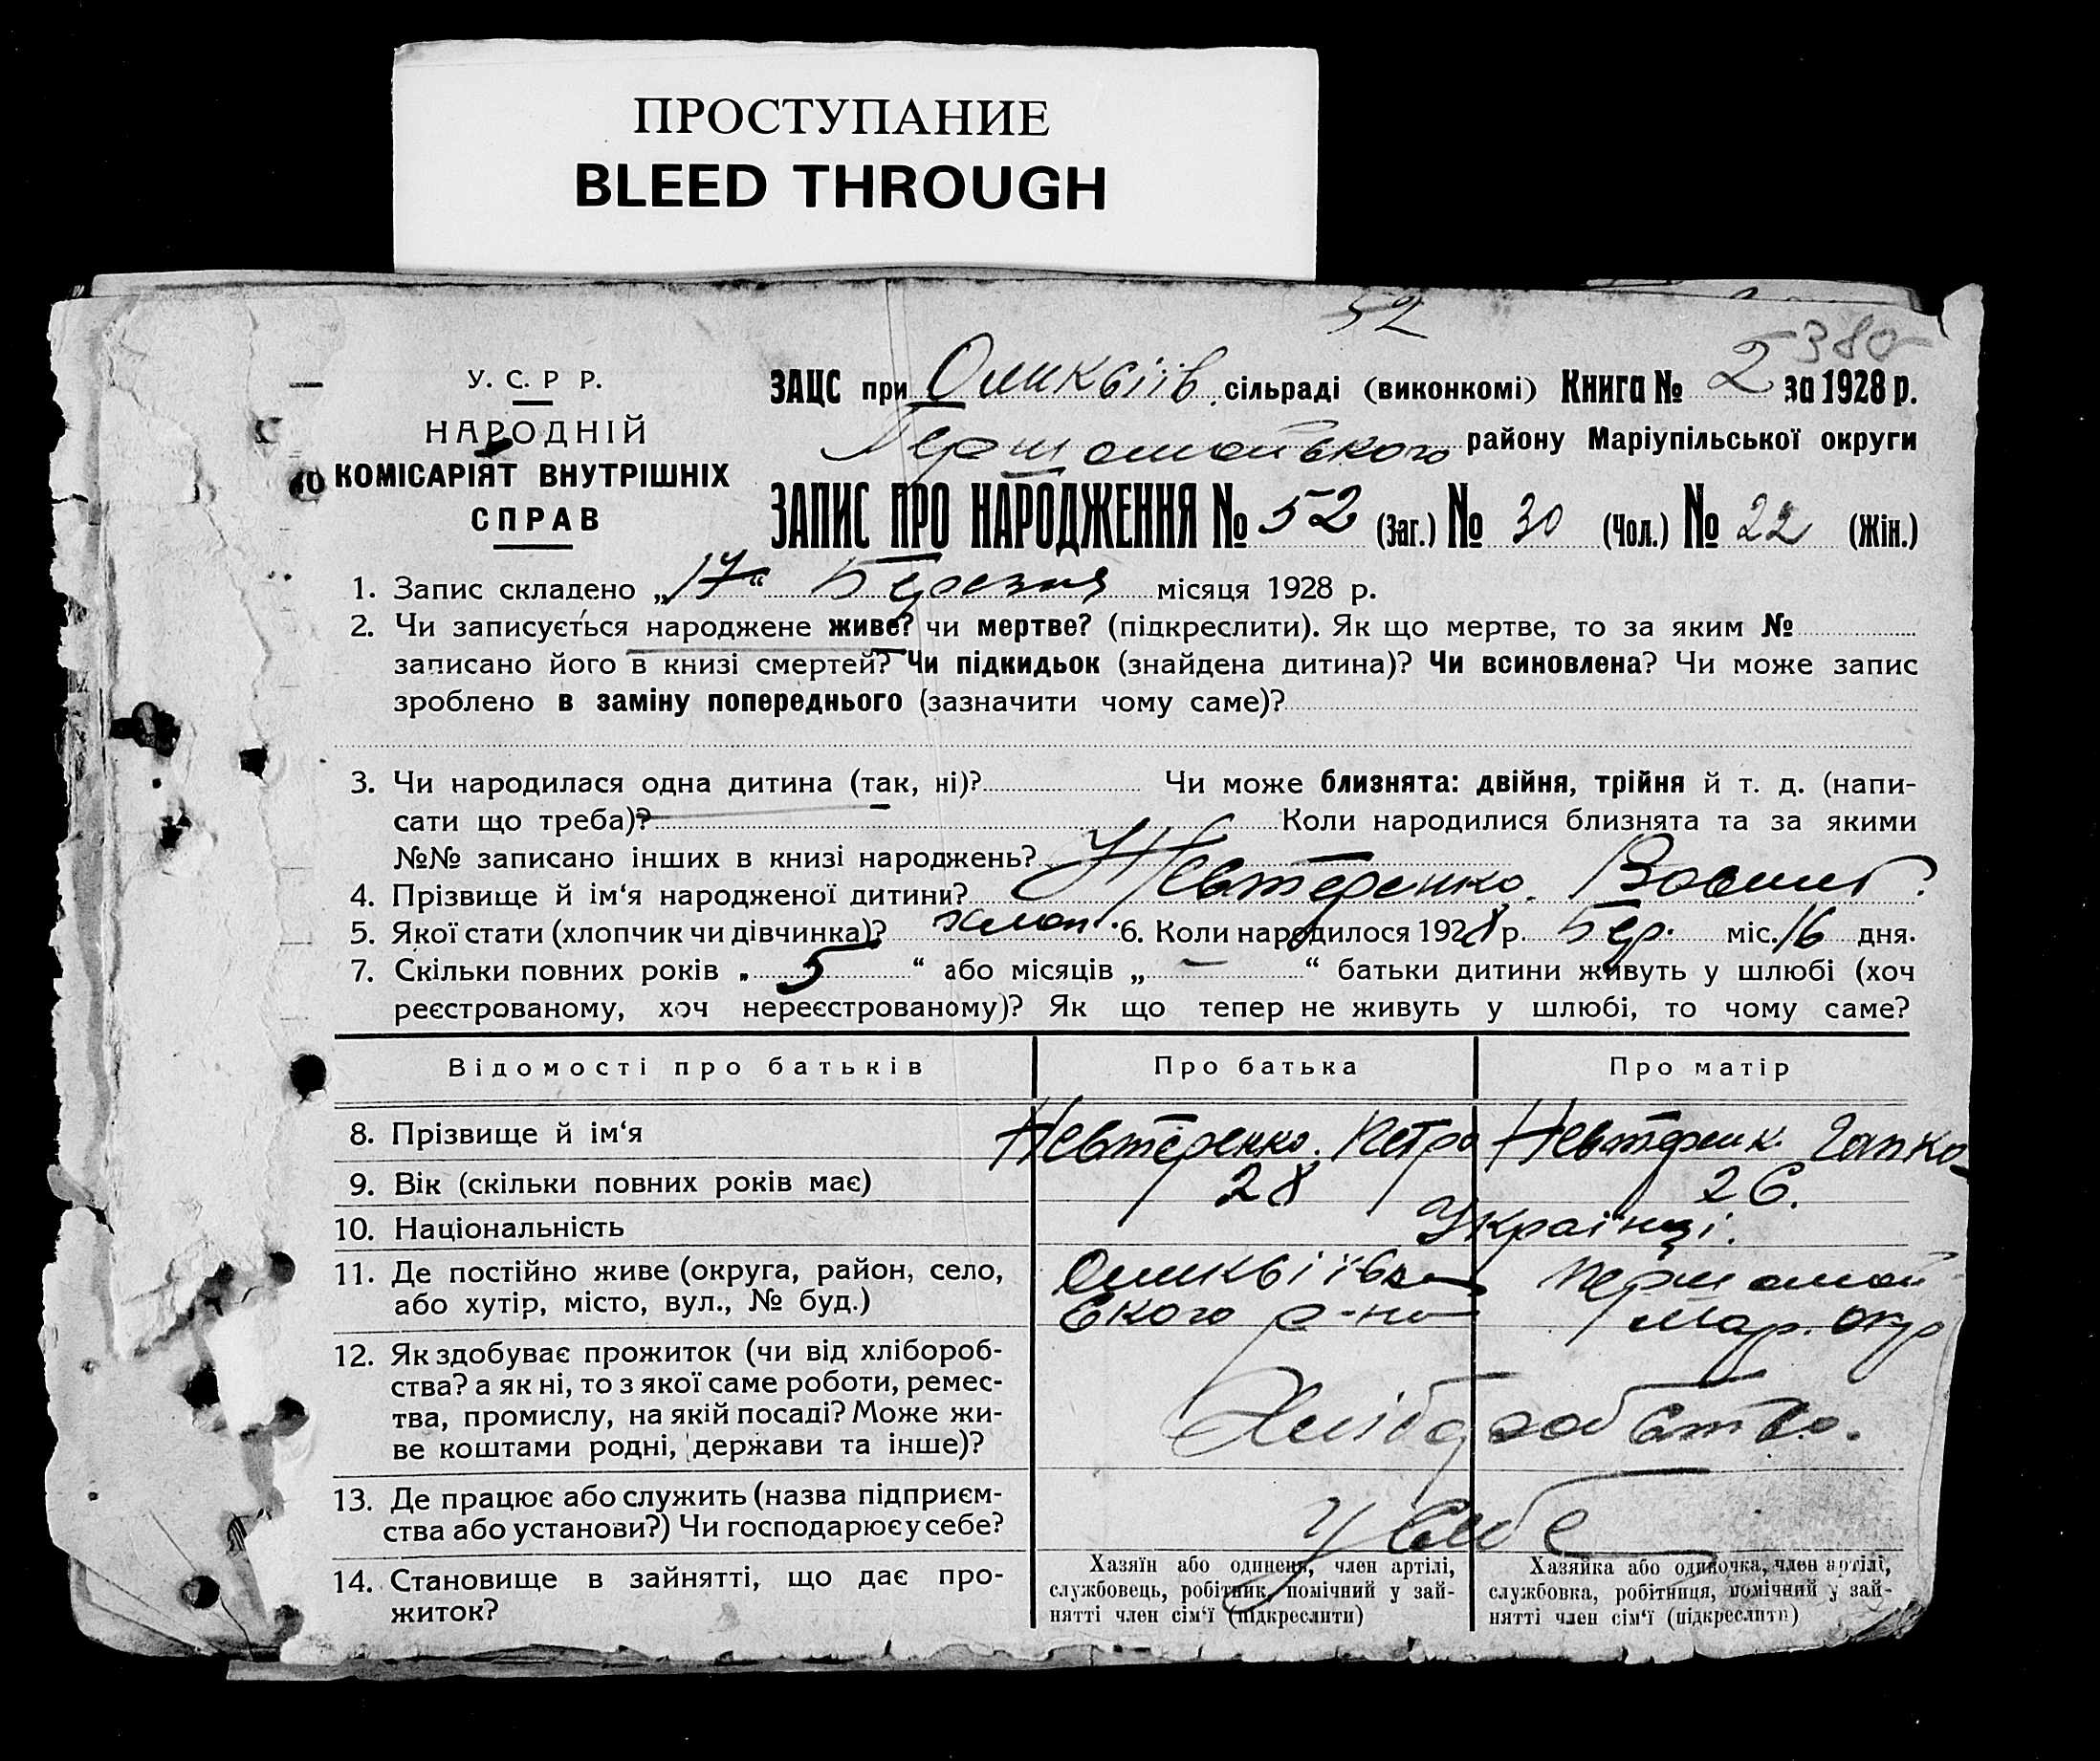 ПРОСТУПАНИЕ
BLEED THROUGH
52
5380
У. С. Р Р.
НАРОДНІЙ
КОМІСАРІЯТ ВНУТРІШНІХ
СПРАВ
ЗАЦС при сільраді (виконкомі) Книга № 2 за 1928 р.
Першомайського району Маріупільської округи
ЗАПИС ПРО НАРОДЖЕННЯ № 52 (Заг.) № 30 (Чол.) № 22 (Жін.)
1. Запис складено „17“ Березня місяця 1928 р.
2. Чи записується народжене живе? чи мертве? (підкреслити). Як що мертве, то за яким №
записано його в книзі смертей? Чи підкидьок (знайдена дитина)? Чи всиновлена? Чи може запис
зроблено в заміну попереднього (зазначити чому саме)?
3. Чи народилася одна дитина (так, ні)? Чи може близнята: двійня, трійня й т. д. (напи-
сати що треба)? Коли народилися близнята та за якими
№№ записано інших в книзі народжень?
4. Прізвище й ім‘я народженої дитини? Невтеренко
5. Якої стати (хлопчик чи дівчинка)? хлоп. 6. Коли народилося 1928 р. Бер. міс. 16 дня.
7. Скільки повних років „ 5 “ або місяців „ – “ батьки дитини живуть у шлюбі (хоч
реєстрованому, хоч нереєстрованому)? Як що тепер не живуть у шлюбі, то чому саме?
Відомості про батьків Про батька Про матір
8. Прізвище й ім‘я Невтеренко. Петро Невтеренк. Гапка
9. Вік (скільки повних років має) 28 26.
10. Національність Українці.
11. Де постійно живе (округа, район, село, Першомай-
або хутір, місто, вул., № буд.) ського р-на Мар. окр
12. Як здобуває прожиток (чи від хлібороб-
ства? а як ні, то з якої саме роботи, ремес-
тва, промислу, на якій посаді? Може жи-
ве коштами родні, держави та інше)?
Хліборобство.
13. Де працює або служить (назва підприєм-
ства або установи?) Чи господарює у себе?
У себе
14. Становище в зайнятті, що дає про-
житок?
Хазяїн або одинець, член артілі,
службовець, робітник, помічний у зай-
нятті член сім‘ї (підкреслити)
Хазяйка або одиночка, член артілі,
службовка, робітниця, помічний у зай-
нятті член сім‘ї (підкреслити)